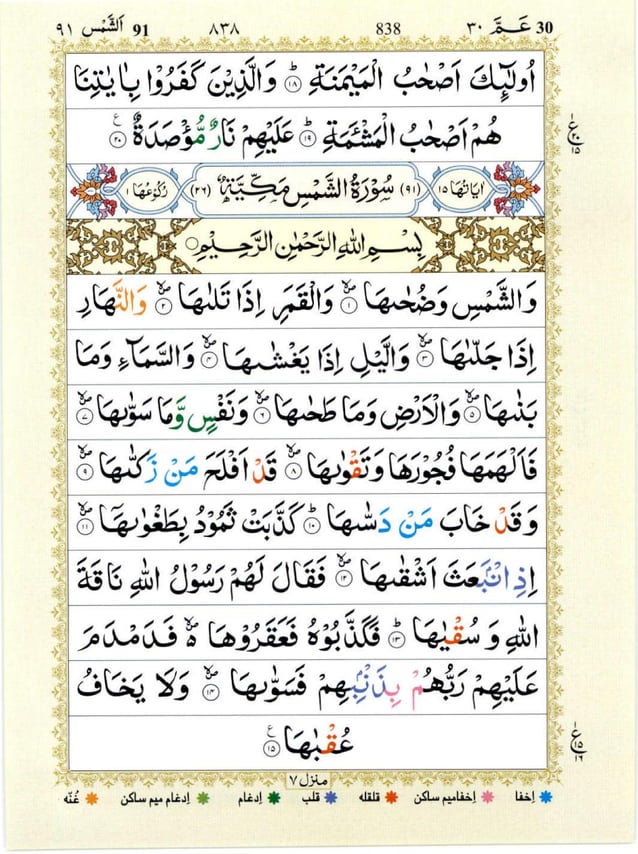 30 عَمَّ ٣٠ 838 ٨٣٨ 91 اَلشَّمْس ٩١
اُولٰٓئِكَ اَصْحٰبُ الْمَيْمَنَةِ ؕ‏ ﴿۱۸﴾ وَالَّذِيْنَ كَفَرُوْا بِاٰيٰتِنَا
هُمْ اَصْحٰبُ الْمَشْئَمَةِ ؕ‏ ﴿۱۹﴾ عَلَيْهِمْ نَارٌ مُّؤْصَدَةٌ ﴿۲۰﴾ ع
ع ٢٠ ١٥
اٰيَاتُهَا ١٥ (٩١) سُوْرَةُ الشَّمْسِ مَكِّيَّةٌ (٢٦) رُكُوْعُهَا ١
بِسْمِ اللهِ الرَّحْمٰنِ الرَّحِيْمِ
وَالشَّمْسِ وَضُحٰىهَا ۙ ﴿۱﴾ وَالْقَمَرِ اِذَا تَلٰىهَا ۙ ﴿۲﴾ وَالنَّهَارِ
اِذَا جَلّٰىهَا ۙ ﴿۳﴾ وَالَّيْلِ اِذَا يَغْشٰىهَا ۙ ﴿۴﴾ وَالسَّمَآءِ وَمَا
بَنٰىهَا ۙ ﴿۵﴾ وَالْاَرْضِ وَمَا طَحٰىهَا ۙ ﴿۶﴾ وَنَفْسٍ وَّمَا سَوّٰىهَا ۙ ﴿۷﴾
فَاَلْهَمَهَا فُجُوْرَهَا وَتَقْوٰىهَا ۙ ﴿۸﴾ قَدْ اَفْلَحَ مَنْ زَكّٰىهَا ۙ ﴿۹﴾
وَقَدْ خَابَ مَنْ دَسّٰىهَا ؕ ﴿۱۰﴾ كَذَّبَتْ ثَمُوْدُ بِطَغْوٰىهَا ۙ ﴿۱۱﴾
اِذِ انْۢبَعَثَ اَشْقٰىهَا ۙ ﴿۱۲﴾ فَقَالَ لَهُمْ رَسُوْلُ اللهِ نَاقَةَ
اللهِ وَ سُقْيٰهَا ؕ ﴿۱۳﴾ فَكَذَّبُوْهُ فَعَقَرُوْهَا ۙ فَدَمْدَمَ
عَلَيْهِمْ رَبُّهُمْ بِذَنْۢبِهِمْ فَسَوّٰىهَا ۙ ﴿۱۴﴾ وَلَا يَخَافُ
عُقْبٰهَا ﴿۱۵﴾ ع
ع ١٥ ١٦
منزل ٧
اِخفا اِخفامیم ساکن قلقله قلب اِدغام اِدغام میم ساکن غُنّه